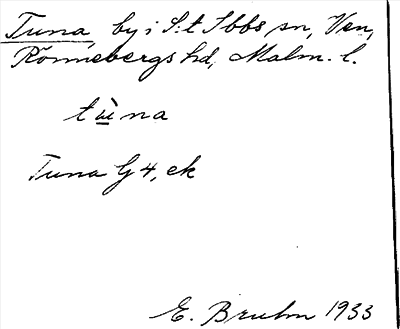 Tuna, by i S:t Ibbs sn, Ven,
Rönnebergs hd, Malm. l.
tùna
Tuna G 4, ek
E. Bruhn 1933